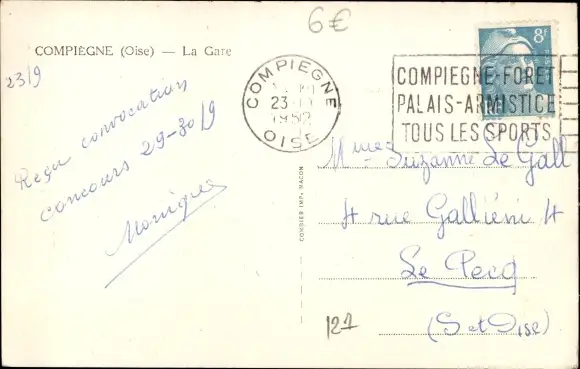 6€
COMPIÈGNE (Oise) — La Gare
23/9
Reçu convocation
concours 29-30/9
Monique
COMPIEGNE
23-9
1952
OISE
8F
COMPIEGNE-FORET
PALAIS-ARMISTICE
TOUS LES SPORTS
COMBIER IMP. MACON
Mme Suzanne Le Gall
4 rue Galliéni 4
Le Pecq
(S et Oise)
127